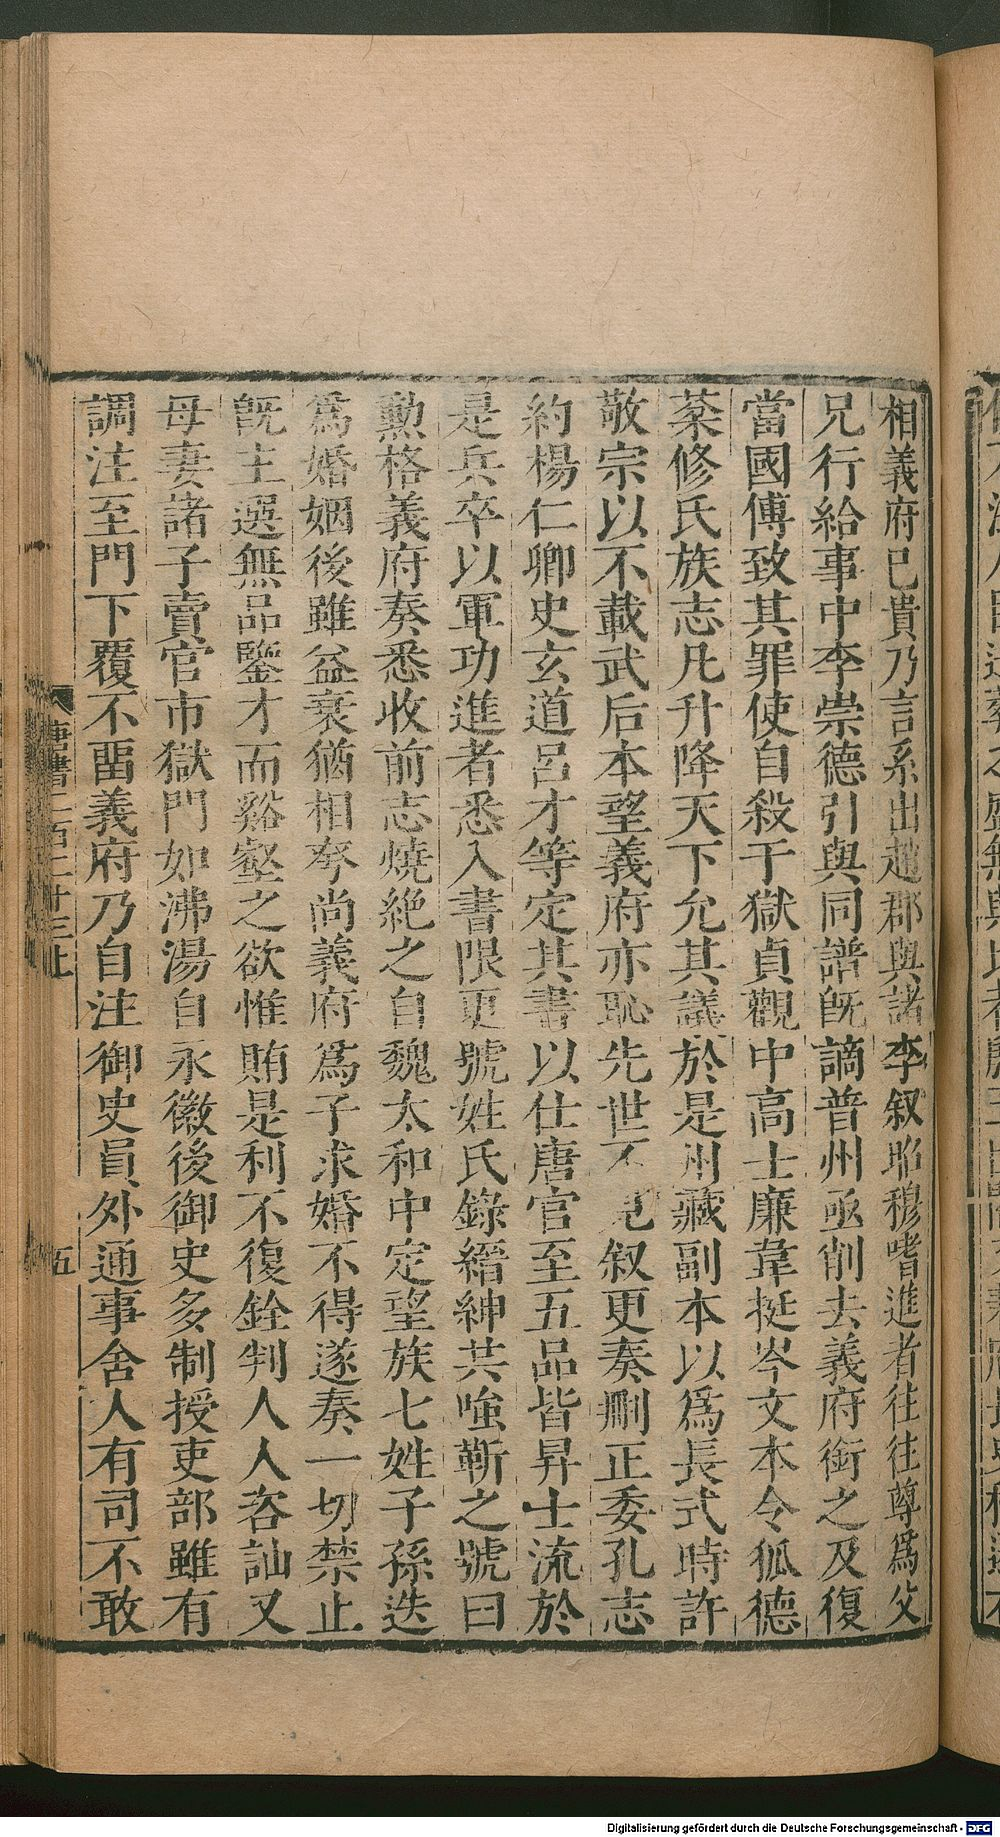 相義府已貴乃言系出趙郡與諸李叙昭穆嗜進者往往尊爲父
兄行給事中李崇德引與同譜旣謫普州亟削去義府銜之及復
當國傅致其罪使自殺于獄貞觀中高士廉韋挺岑文本令狐德
棻修氏族志凡升降天下允其議於是州藏副本以爲長式時許
敬宗以不載武后本望義府亦恥先世不見叙更奏刪正委孔志
約楊仁卿史玄道呂才等定其書以仕唐官至五品皆昇士流於
是兵卒以軍功進者悉入書限更號姓氏錄縉紳共嗤靳之號曰
勲格義府奏悉收前志燒絕之自魏太和中定望族七姓子孫迭
爲婚姻後雖益衰猶相夸尚義府爲子求婚不得遂奏一切禁止
旣主選無品鑒才而谿壑之欲惟賄是利不復銓判人人咨訕又
母妻諸子賣官市獄門如沸湯自永徽後御史多制授吏部雖有
調注至門下覆不畱義府乃自注御史員外通事舍人有司不敢
唐書二百二十三上
五
Digitalisierung gefördert durch die Deutsche Forschungsgemeinschaft - DFG